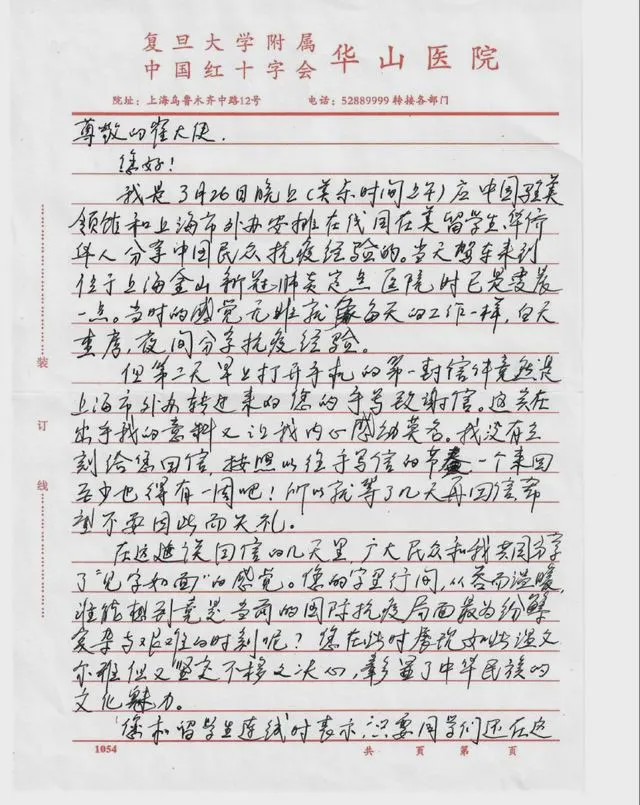 复旦大学附属
中国红十字会 华山医院
院址：上海乌鲁木齐中路12号 电话：52889999 转接各部门
尊敬的崔大使，
您好！
我是3月26日晚上（美东时间上午）应中国驻美
领馆和上海市外办安排在线同在美留学生、华侨
华人分享中国民众抗疫经验的。当天驾车来到
位于上海金山新冠肺炎定点医院时已是凌晨
一点。当时的感觉无非就像每天的工作一样，白天
查房，夜间分享抗疫经验。
但第二天早上打开手机的第一封信件竟然是
上海市外办转过来的您的手写致谢信。这实在
出乎我的意料又让我内心感动莫名。我没有立
刻给您回信，按照以往手写信的节奏一个来回
至少也得有一周吧！所以就等了几天再回信，希
望不要因此而失礼。
在这延误回信的几天里，广大民众和我共同分享
了“见字如面”的感觉。您的字里行间，从容而温暖，
谁能想到竟是当前的国际抗疫局面最为纷繁
复杂与艰难的时刻呢？您在此时展现如此温文
尔雅但又坚定不移之决心，彰显了中华民族的
文化魅力。
您和留学生连线时表示，只要同学们还在这
装
订
线
1054 共 页 第 页